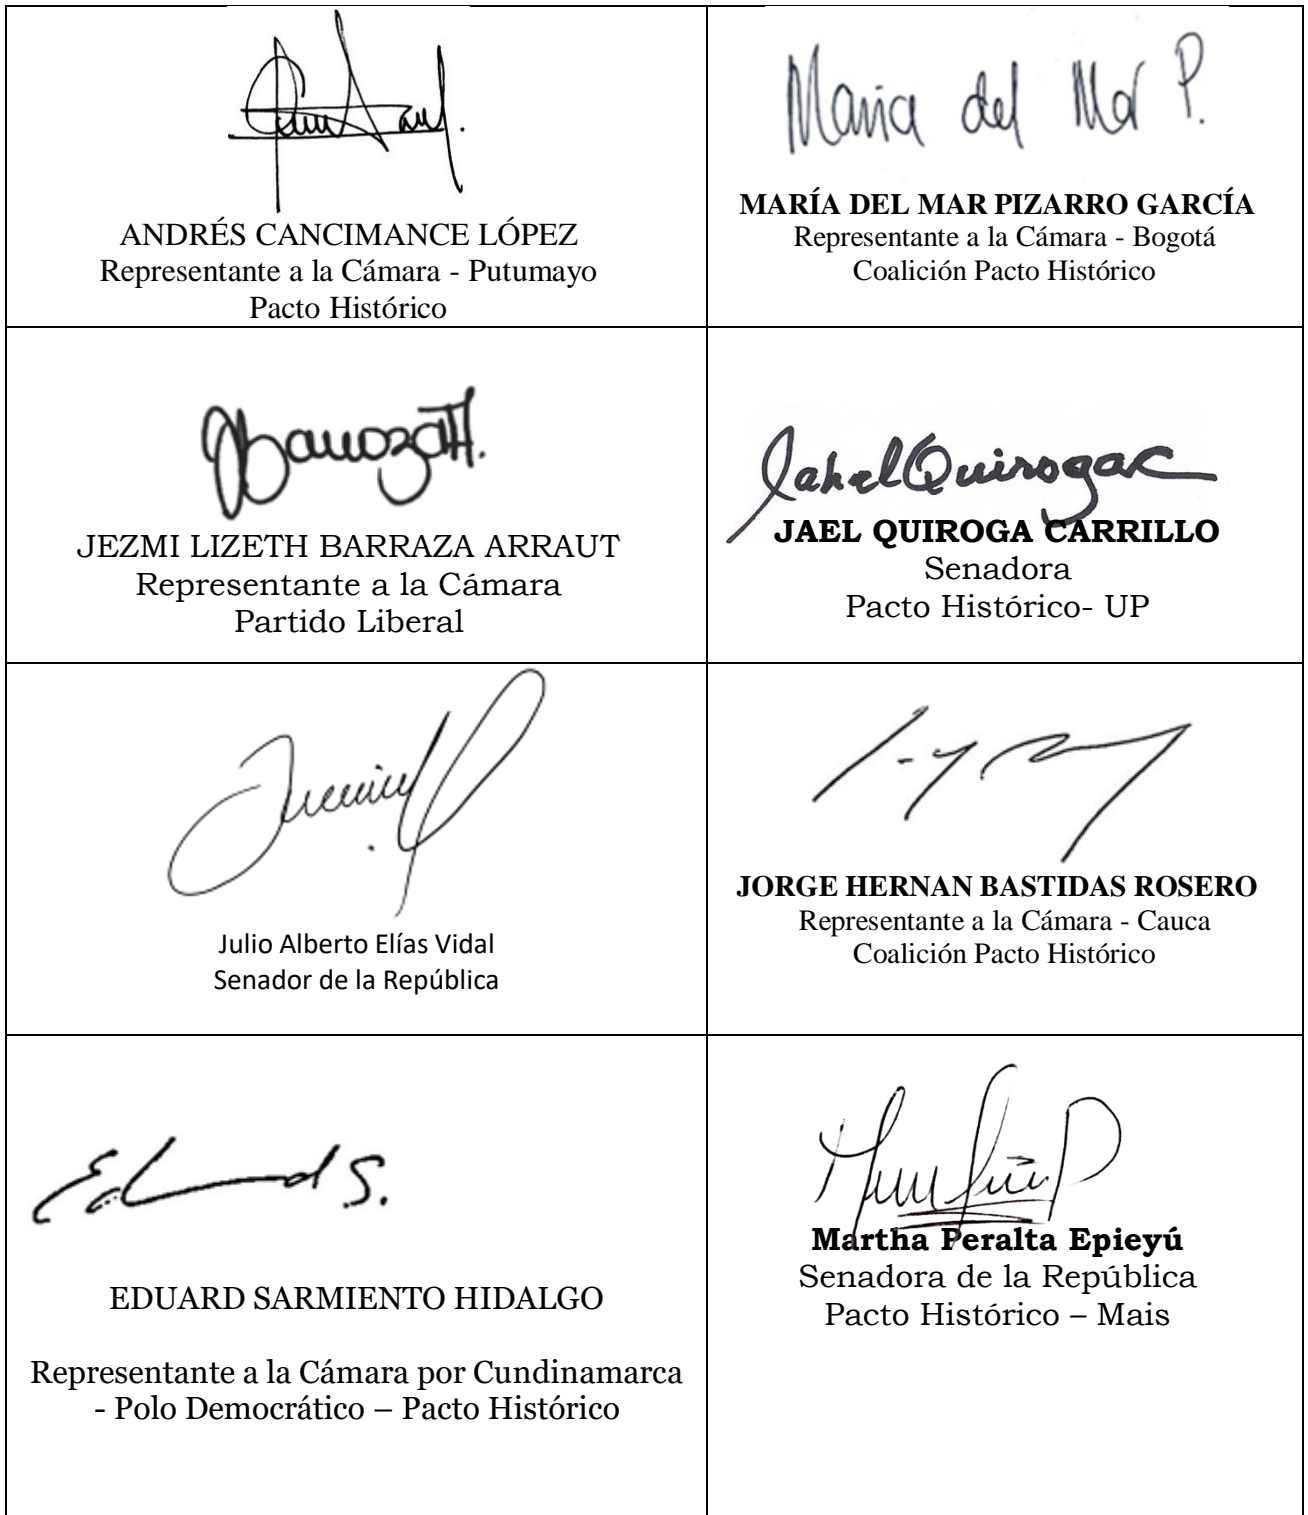 ANDRÉS CANCIMANCE LÓPEZ
Representante a la Cámara - Putumayo
Pacto Histórico
Maria del Mar P.
MARÍA DEL MAR PIZARRO GARCÍA
Representante a la Cámara - Bogotá
Coalición Pacto Histórico
JEZMI LIZETH BARRAZA ARRAUT
Representante a la Cámara
Partido Liberal
Jahel Quiroga C
JAEL QUIROGA CARRILLO
Senadora
Pacto Histórico- UP
Julio Alberto Elías Vidal
Senador de la República
JORGE HERNAN BASTIDAS ROSERO
Representante a la Cámara - Cauca
Coalición Pacto Histórico
EDUARD SARMIENTO HIDALGO
Representante a la Cámara por Cundinamarca
- Polo Democrático – Pacto Histórico
Martha Peralta Epieyú
Senadora de la República
Pacto Histórico – Mais